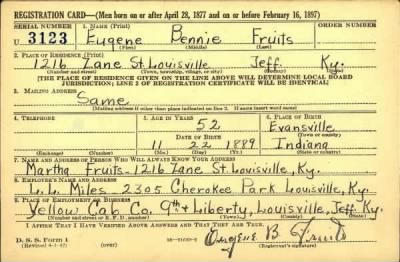 REGISTRATION CARD—(Men born on or after April 28, 1877 and on or before February 16, 1897)
SERIAL NUMBER 1. NAME (Print) ORDER NUMBER
U 3123 Eugene Bennie Fruits
(First) (Middle) (Last)
2. PLACE OF RESIDENCE (Print)
1216 Zane St. Louisville Jeff. Ky.
(Number and street) (Town, township, village, or city) (County) (State)
[THE PLACE OF RESIDENCE GIVEN ON THE LINE ABOVE WILL DETERMINE LOCAL BOARD
JURISDICTION; LINE 2 OF REGISTRATION CERTIFICATE WILL BE IDENTICAL]
3. MAILING ADDRESS
Same
[Mailing address if other than place indicated on line 2. If same insert word same]
4. TELEPHONE 5. AGE IN YEARS 6. PLACE OF BIRTH
52 Evansville
DATE OF BIRTH (Town or county)
11 22 1889 Indiana
(Exchange) (Number) (Mo.) (Day) (Yr.) (State or country)
7. NAME AND ADDRESS OF PERSON WHO WILL ALWAYS KNOW YOUR ADDRESS
Martha Fruits-1216 Zane St. Louisville, Ky.
8. EMPLOYER'S NAME AND ADDRESS
L.L. Miles-2305 Cherokee Park Louisville, Ky.
9. PLACE OF EMPLOYMENT OR BUSINESS
Yellow Cab Co. 9th & Liberty, Louisville, Jeff. Ky.
(Number and street or R. F. D. number) (Town) (County) (State)
I AFFIRM THAT I HAVE VERIFIED ABOVE ANSWERS AND THAT THEY ARE TRUE.
D. S. S. Form 1 Eugene B Fruits
(Revised 4-1-42) (over) (Registrant's signature)